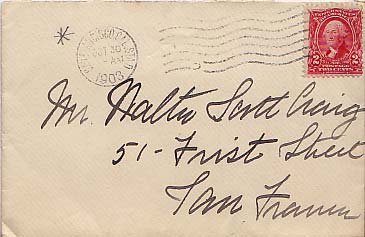 SAN FRANCISCO, CAL. STA. D
OCT 30
AM
1903
2 2
POSTAGE
TWO CENTS
Mr. Walter Scott Craig
51 - Frist Street
San Francis